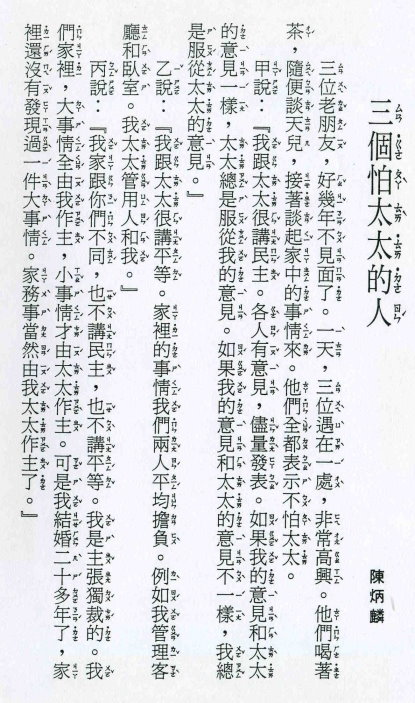 三個怕太太的人
陳炳麟
三位老朋友，好幾年不見面了。一天，三位遇在一處，非常高興。他們喝著
茶，隨便談天兒，接著談起家中的事情來。他們全都表示不怕太太。
甲說：『我跟太太很講民主。各人有意見，儘量發表。如果我的意見和太太
的意見一樣，太太總是服從我的意見。如果我的意見和太太的意見不一樣，我總
是服從太太的意見。』
乙說：『我跟太太很講平等。家裡的事情我們兩人平均擔負。例如我管理客
廳和臥室。我太太管用人和我。』
丙說：『我家跟你們不同，也不講民主，也不講平等。我是主張獨裁的。我
們家裡，大事情全由我作主，小事情才由太太作主。可是我結婚二十多年了，家
裡還沒有發現過一件大事情。家務事當然由我太太作主了。』